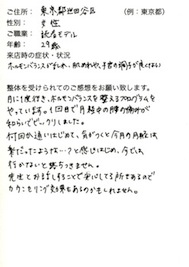 ご住所： 東京都世田谷区 （例：東京都）
性別： 女性
ご職業： 読者モデル
年齢： 29歳
来店時の症状・状況
ホルモンバランスが乱れ、肌あれや、子宮の調子が良くない
整体を受けられてのご感想をお願い致します。
月に1度程で、ホルモンバランスを整えるプログラムを
やっています。1回目で月経中の腰の痛みが
和らいでビックリしました。
何回か通いはじめて、気がつくと今月の月経は
楽だったような…？と感じはじめ、今では
行かないと落ちつきません。
先生とお話しすることで安心してる所もあるので
カウンセリング効果もあるのかもしれません。